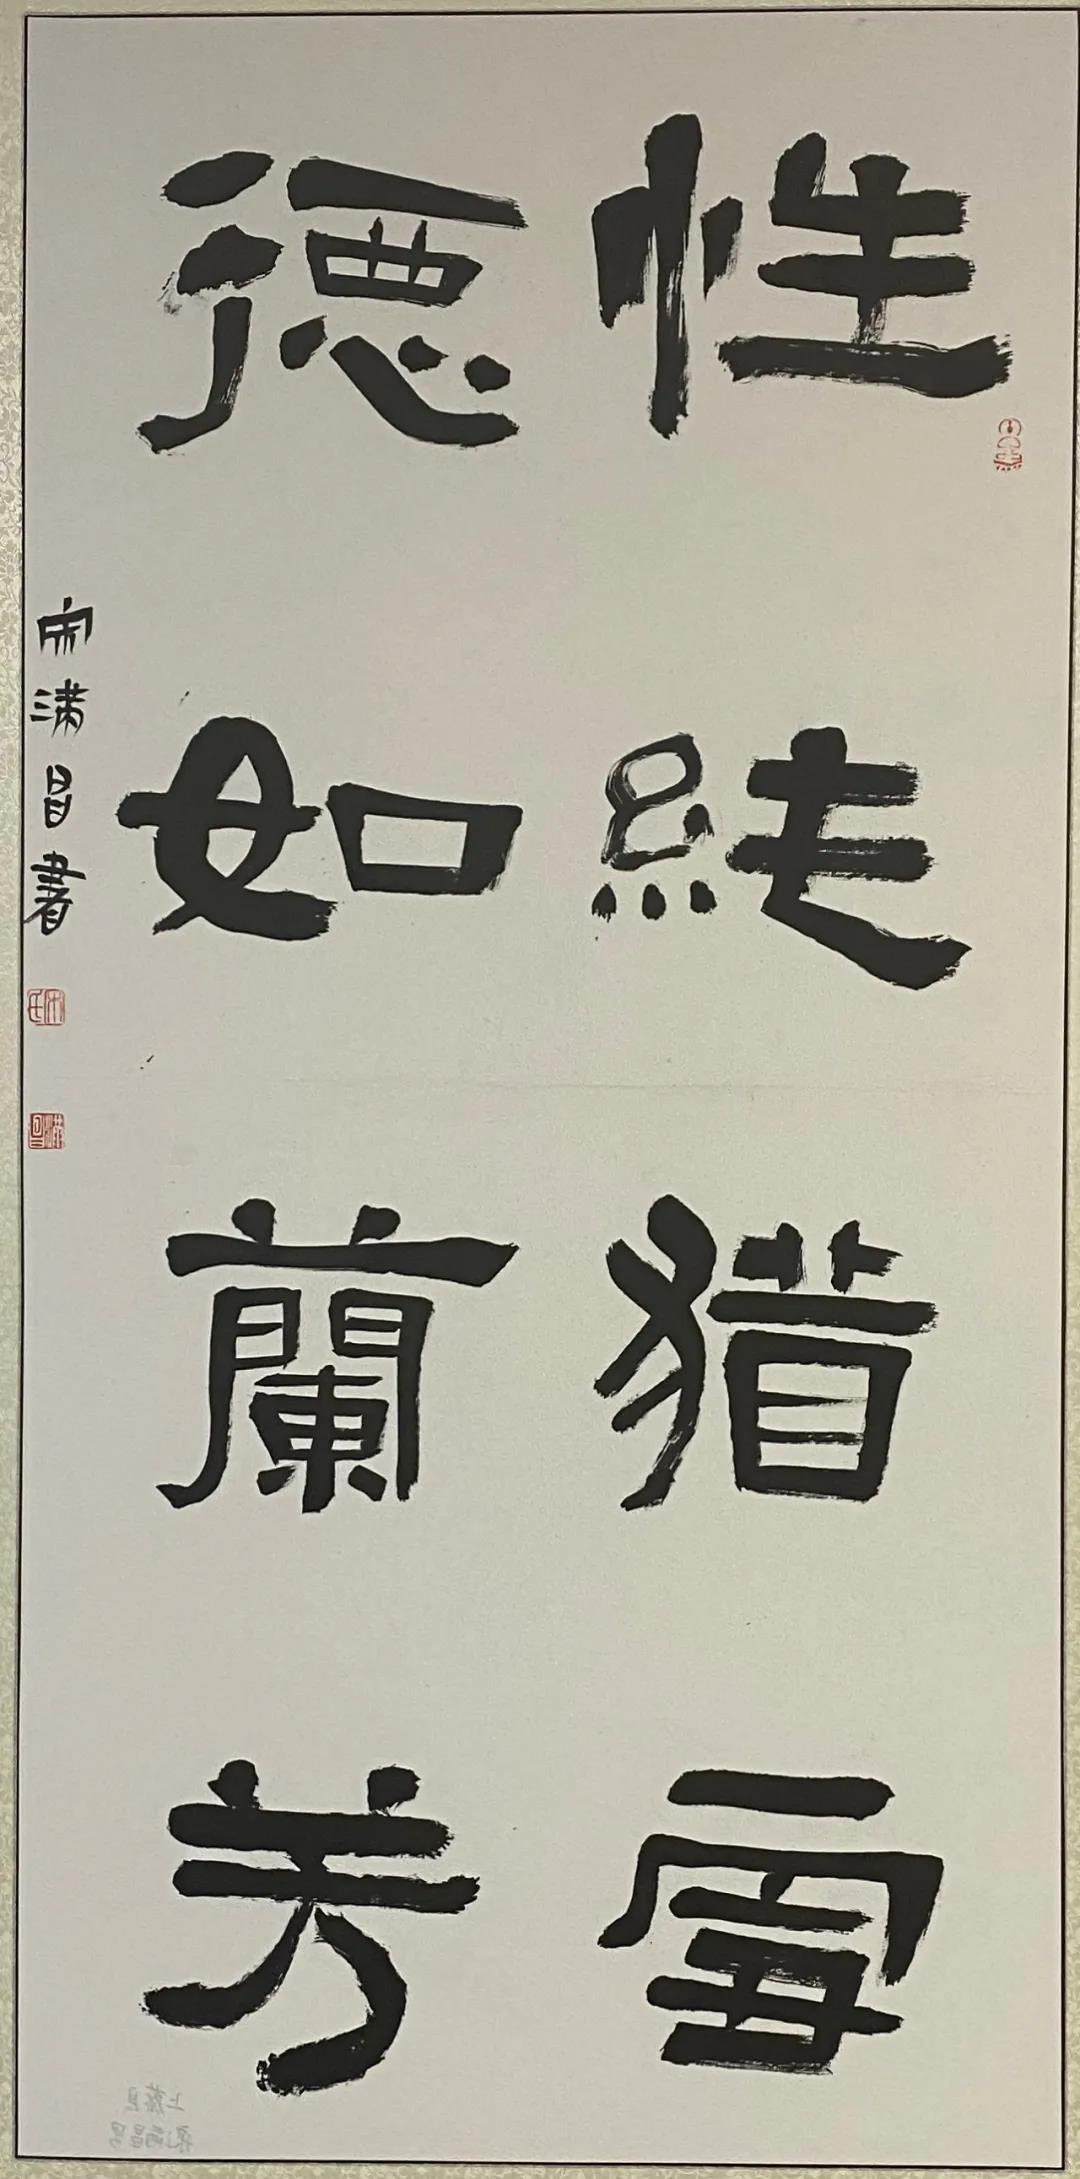 性純猶雪
德如蘭芳
宋满昌書